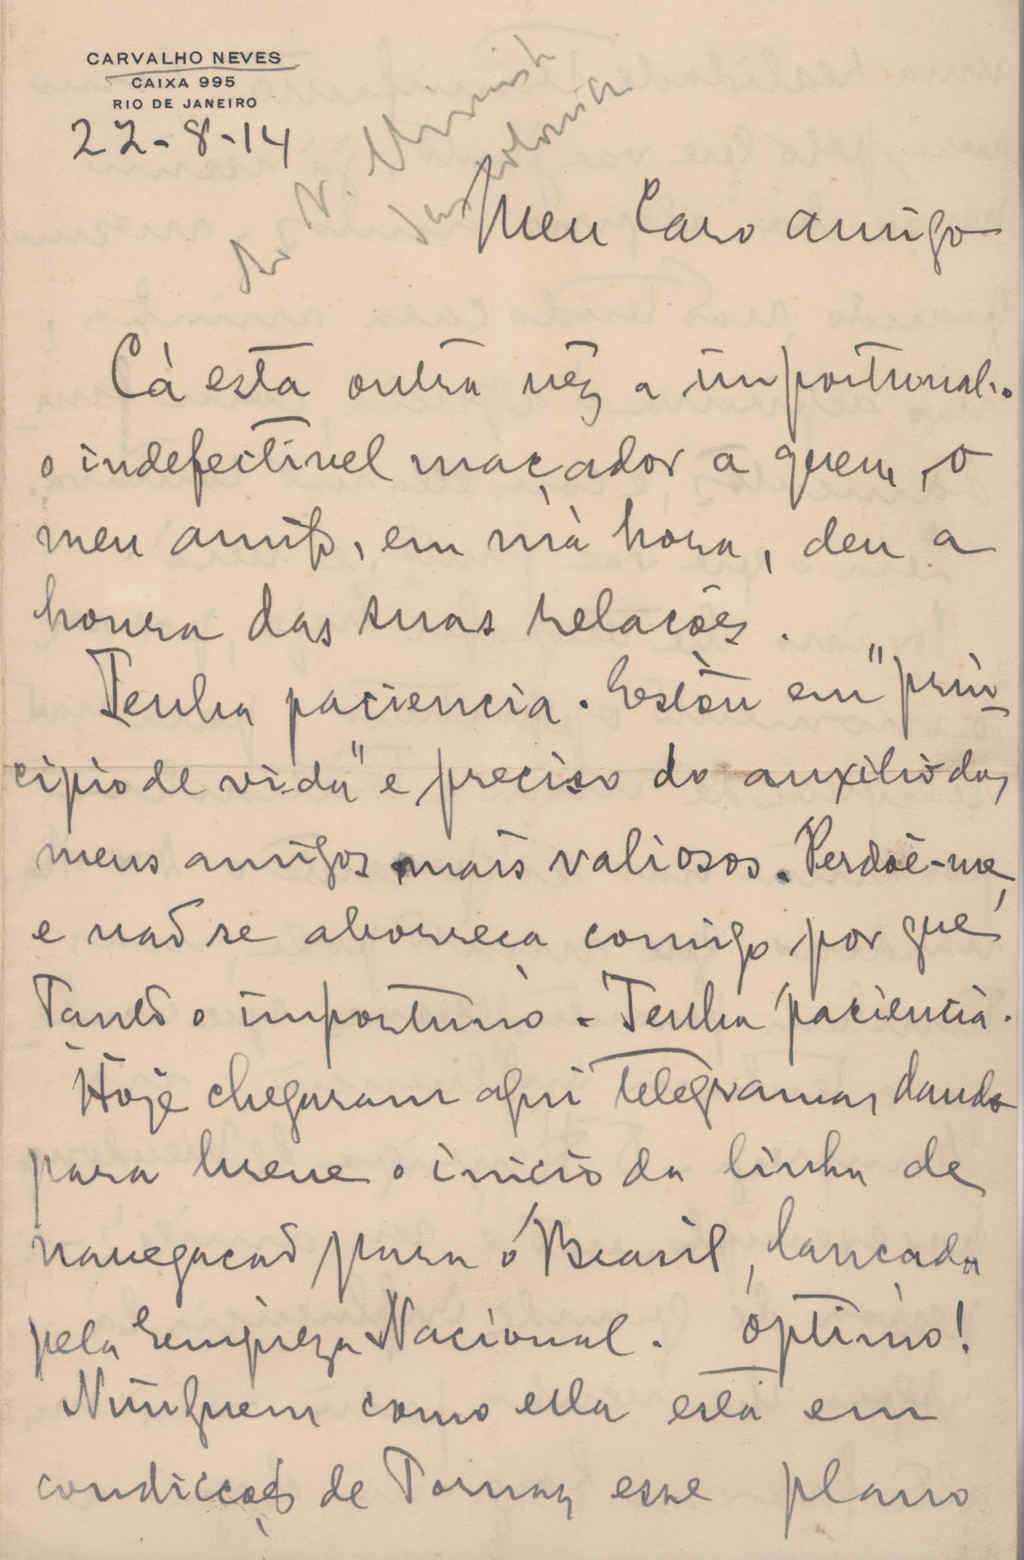 CARVALHO NEVES
CAIXA 995
RIO DE JANEIRO
22-8-14
Meu Caro amigo
Cá está outra vez a importunal-o
o indefectivel maçador a quem, o
meu amigo, em má hora, deu a
honra das suas relações.
Tenha paciencia. Estou em "prin-
cipio de vida" e preciso do auxilio dos
meus amigos mais valiosos. Perdoe-me,
e não se aborreça comigo por que
tanto o importuno. Tenha paciencia.
Hoje chegaram aqui telegramas dando
para breve o inicio da linha de
navegação para o Brasil, lançada
pela Empreza Nacional. Óptimo!
Ninguem como ella está em
condicções de tornar esse plano